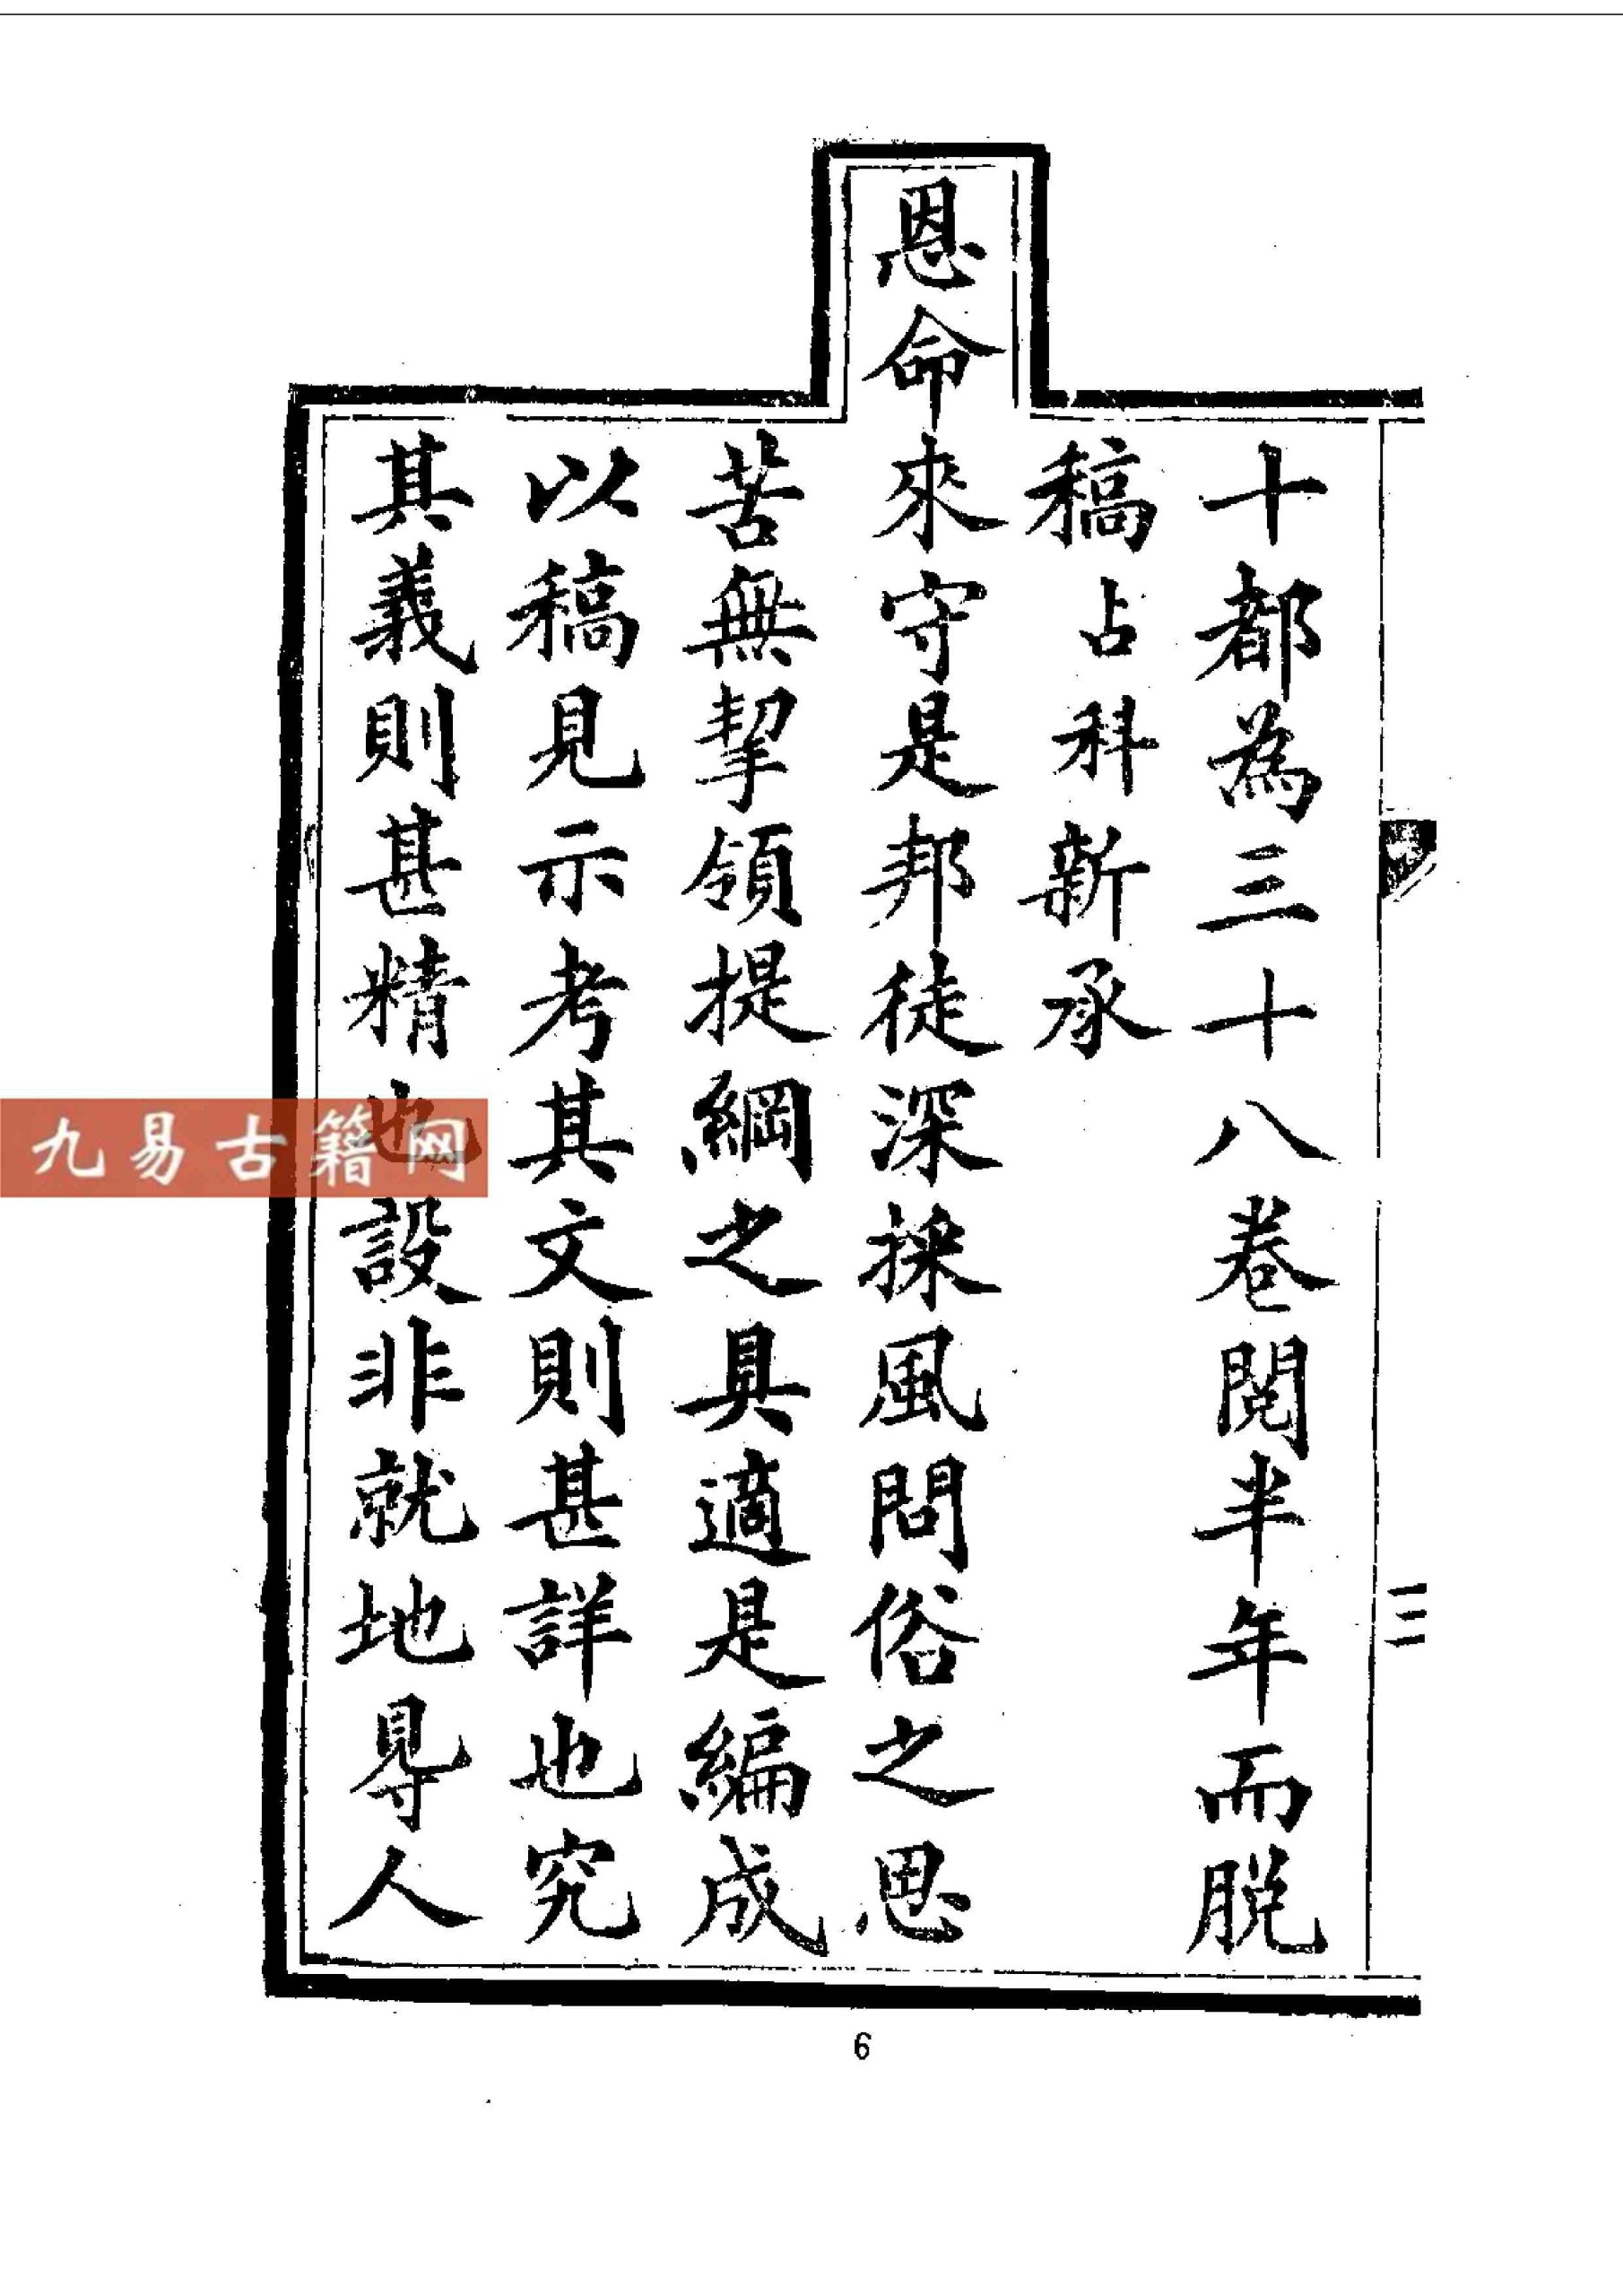 十都為三十八卷閱半年而脫
稿占科新承
恩命來守是邦徒深採風問俗之思
苦無挈領提綱之具適是編成
以稿見示考其文則甚詳也究
其義則甚精也設非就地㝵人
二
九易古籍网
6